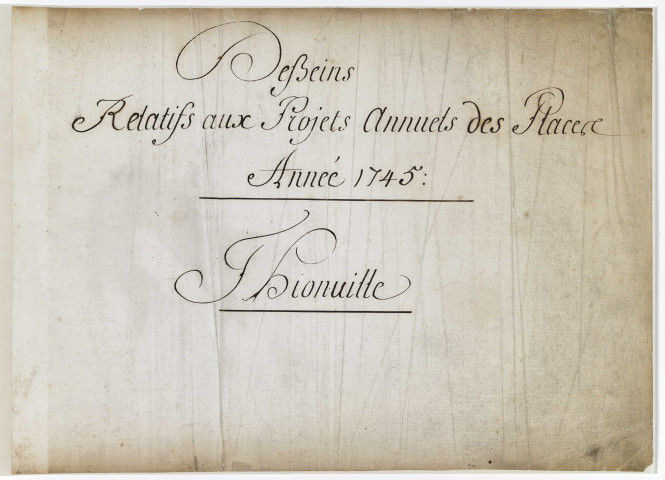 Deßeins
Relatifs aux Projets Annuels des Places
Année 1745:
Thionuille